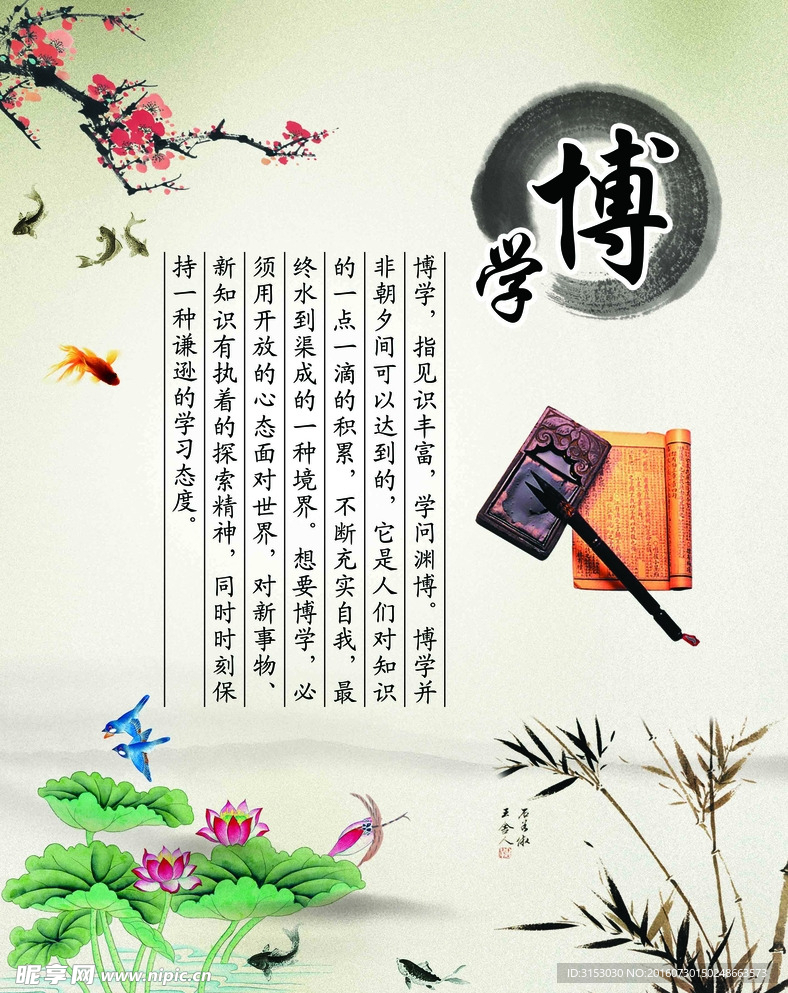 博学
博学，指见识丰富，学问渊博。博学并
非朝夕间可以达到的，它是人们对知识
的一点一滴的积累，不断充实自我，最
终水到渠成的一种境界。想要博学，必
须用开放的心态面对世界，对新事物、
新知识有执着的探索精神，同时时刻保
持一种谦逊的学习态度。
昵享网 www.nipic.cn
ID:3153030 NO:20160730150248663573